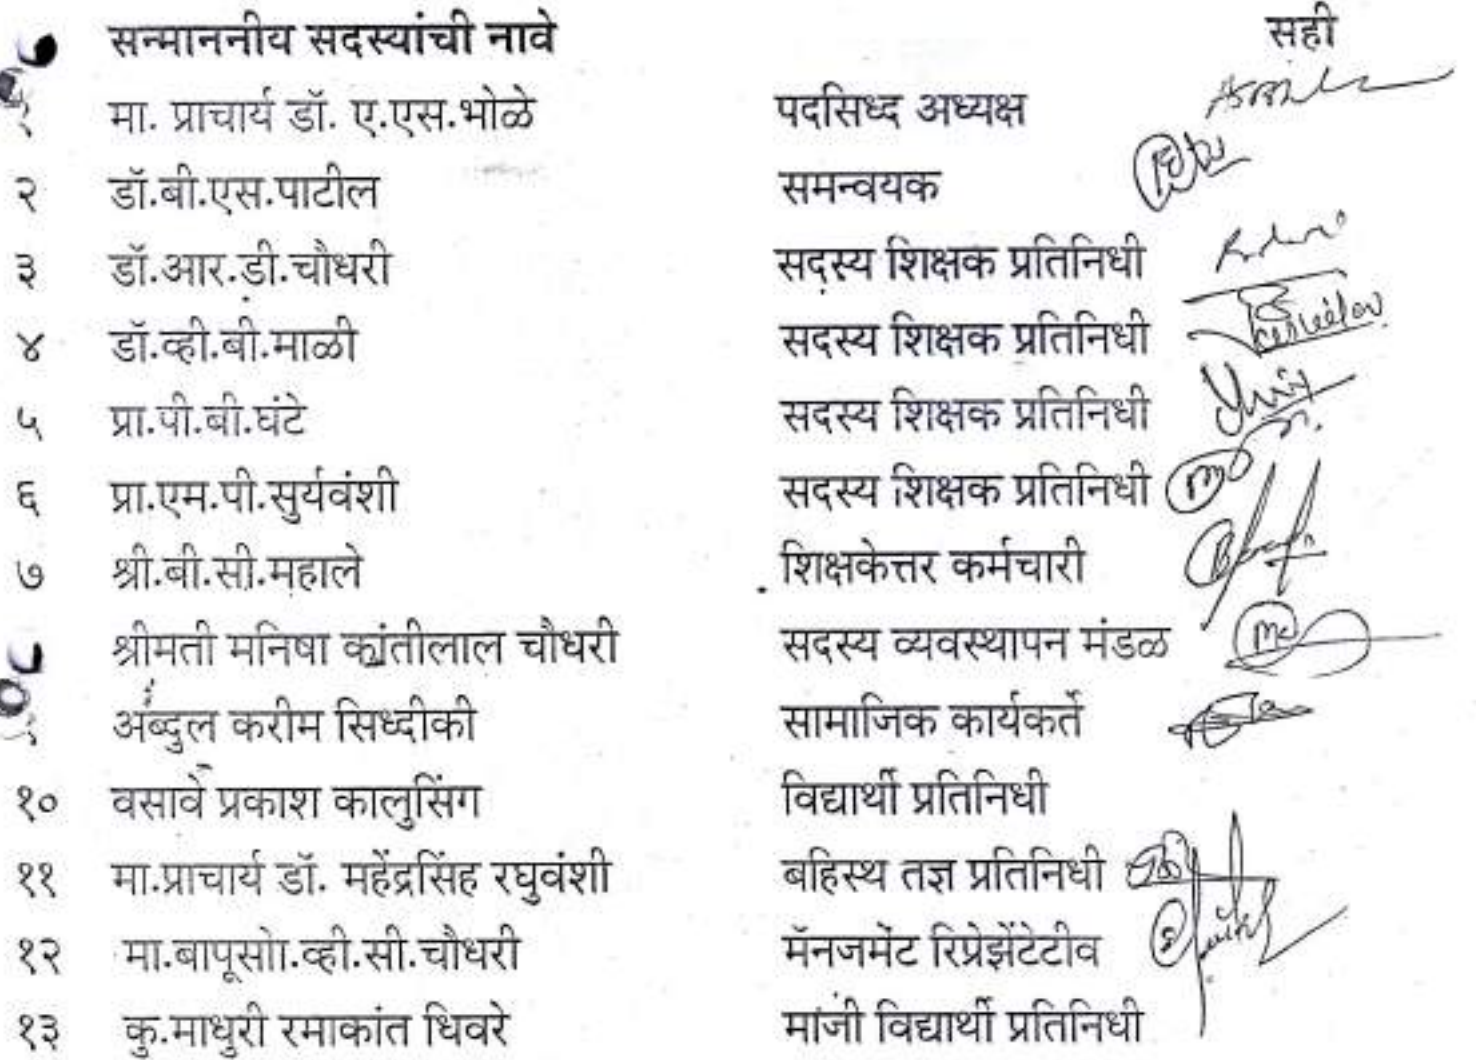 सन्माननीय सदस्यांची नावे सही
१ मा. प्राचार्य डॉ. ए.एस.भोळे पदसिध्द अध्यक्ष
२ डॉ.बी.एस.पाटील समन्वयक
३ डॉ.आर.डी.चौधरी सदस्य शिक्षक प्रतिनिधी
४ डॉ.व्ही.बी.माळी सदस्य शिक्षक प्रतिनिधी
५ प्रा.पी.बी.घंटे सदस्य शिक्षक प्रतिनिधी
६ प्रा.एम.पी.सुर्यवंशी सदस्य शिक्षक प्रतिनिधी
७ श्री.बी.सी.महाले शिक्षकेत्तर कर्मचारी
श्रीमती मनिषा कांतीलाल चौधरी सदस्य व्यवस्थापन मंडळ
अब्दुल करीम सिध्दीकी सामाजिक कार्यकर्ते
१० वसावे प्रकाश कालुसिंग विद्यार्थी प्रतिनिधी
११ मा.प्राचार्य डॉ. महेंद्रसिंह रघुवंशी बहिस्थ तज्ञ प्रतिनिधी
१२ मा.बापूसाो.व्ही.सी.चौधरी मॅनजमेंट रिप्रेझेंटेटीव
१३ कु.माधुरी रमाकांत धिवरे मांजी विद्यार्थी प्रतिनिधी